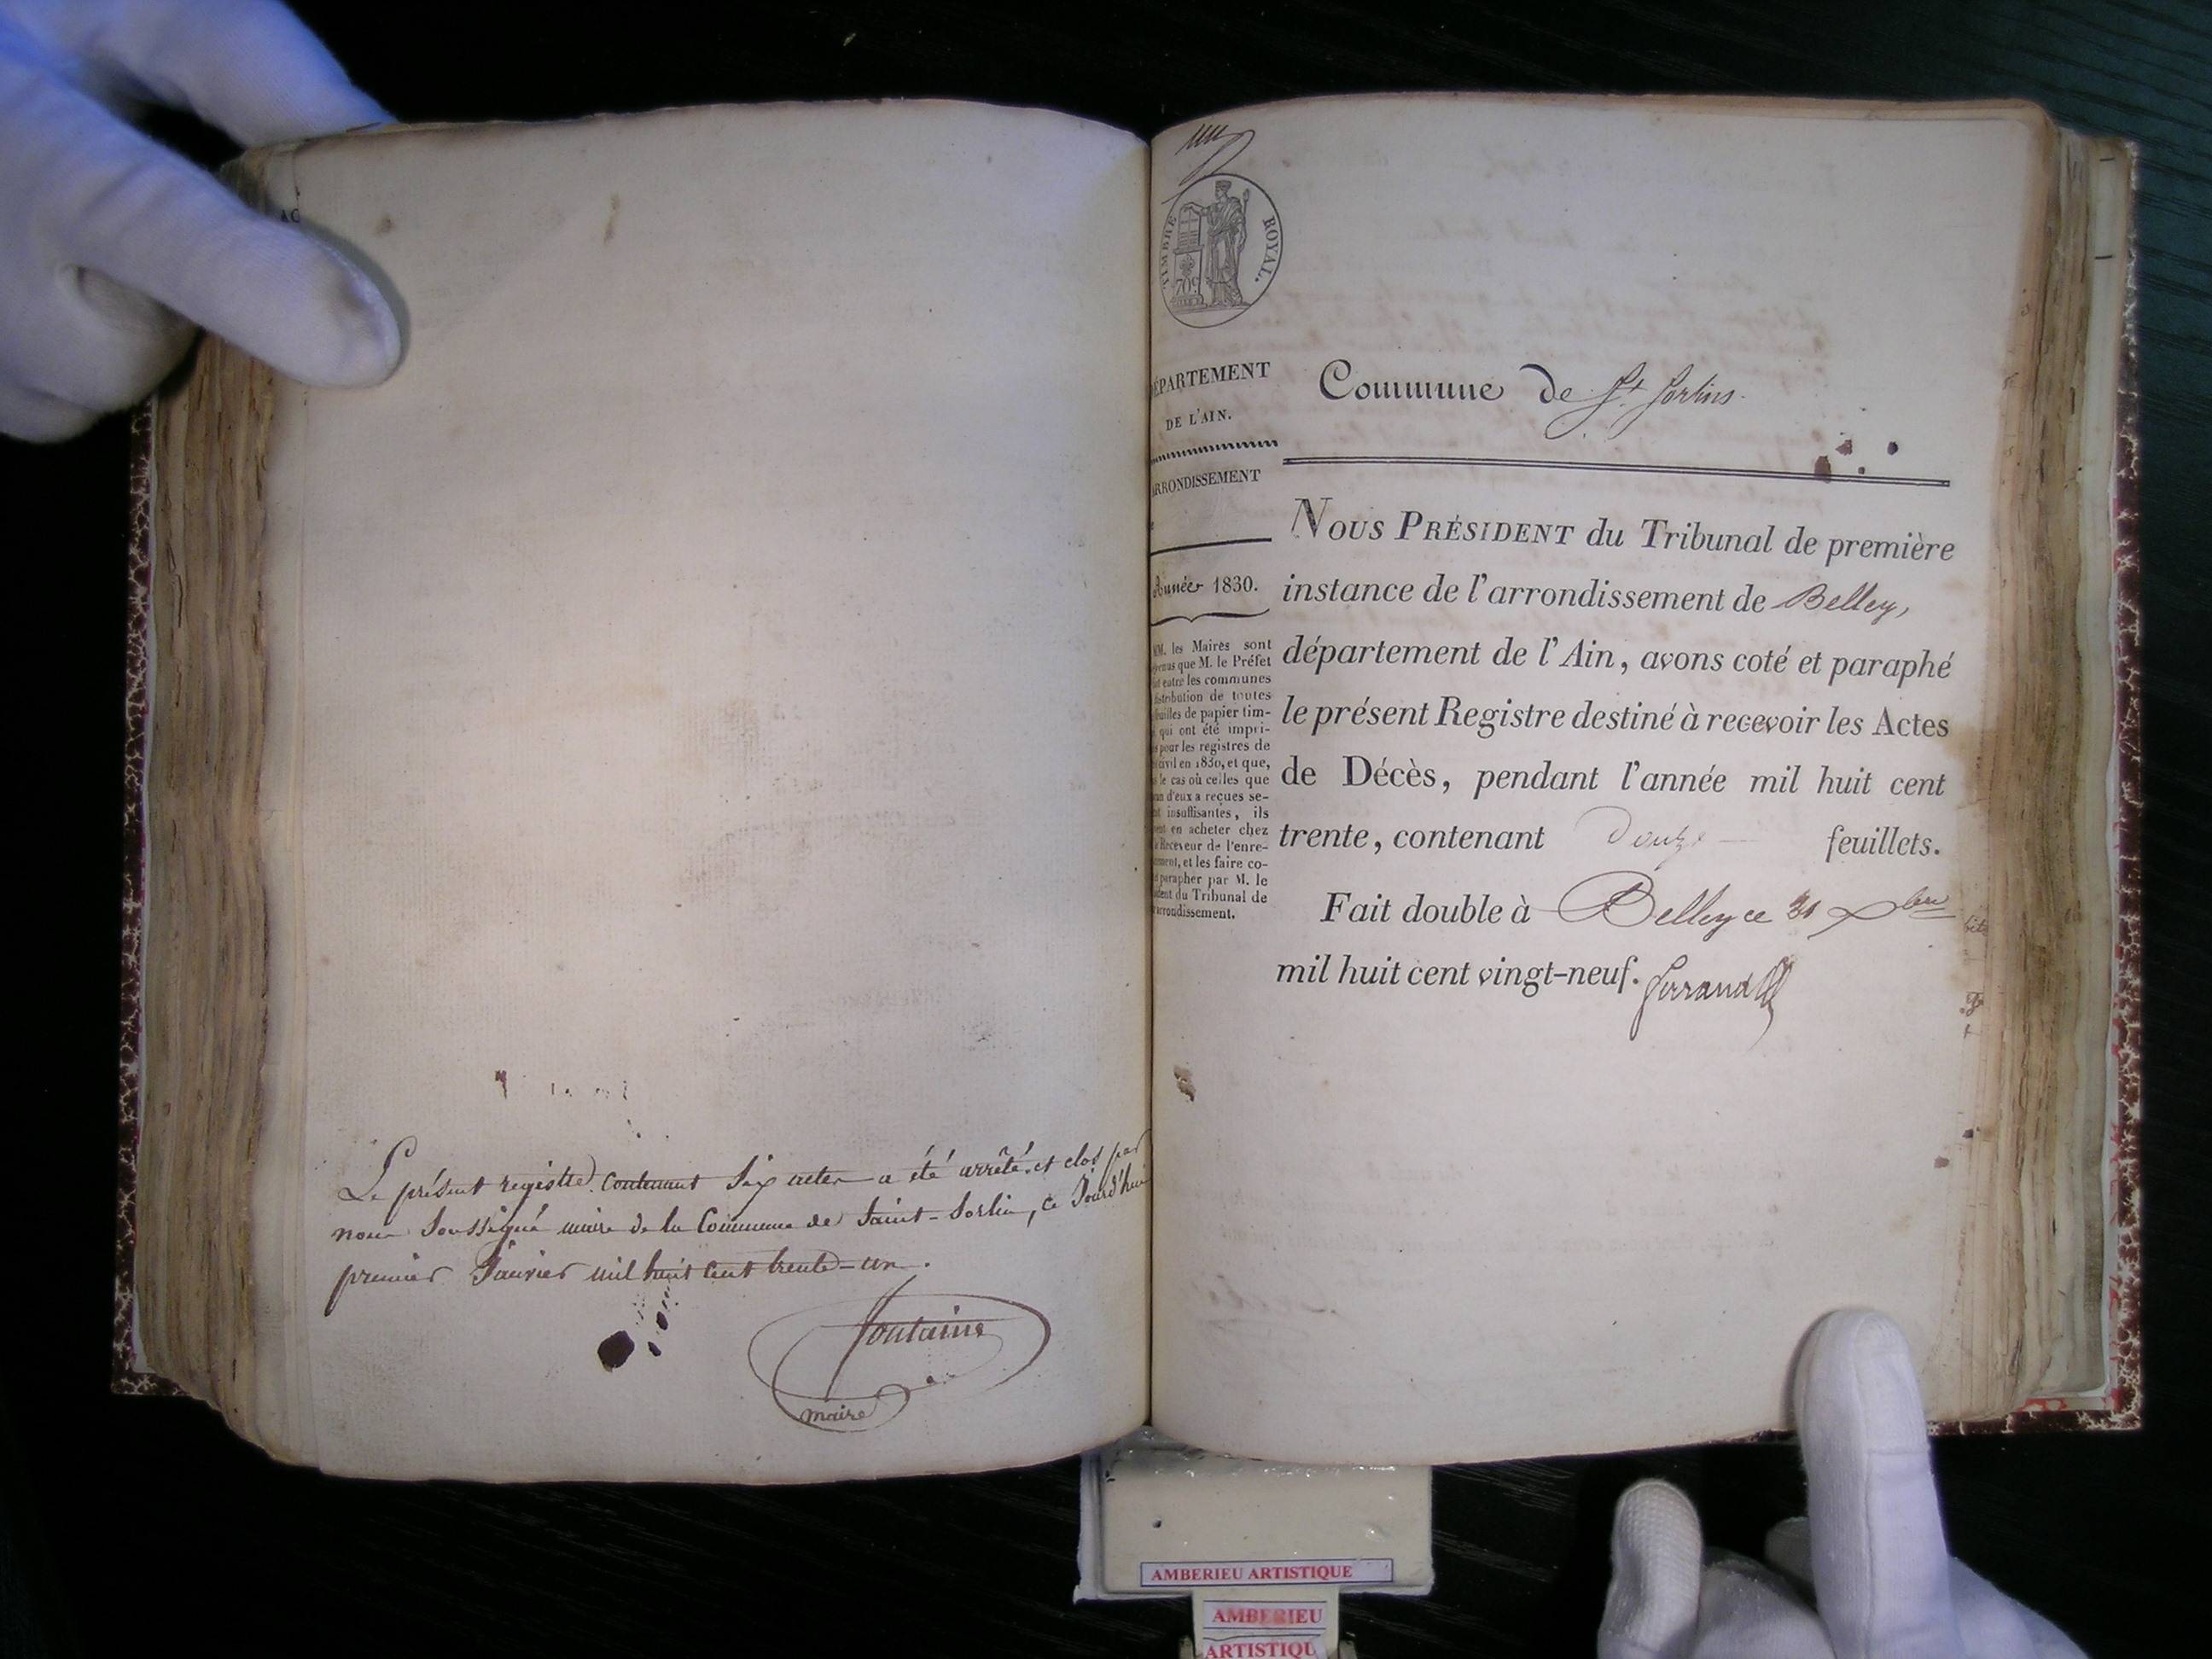 Le présent registre contenant Six actes a été arrêté et clos par
nous Soussigné maire de la Commune de Saint-Sorlin, ce Jourd'hui
premier Janvier mil huit cent trente-un.
fontaine
maire
TIMBRE ROYAL.
70c
DÉPARTEMENT
DE L'AIN.
ARRONDISSEMENT
Année 1830.
MM. les Maires sont
que M. le Préfet
entre les communes
distribution de toutes
feuilles de papier tim-
qui ont été impri-
pour les registres de
civil en 1830, et que,
le cas où celles que
d'eux a reçues se-
insuffisantes, ils
en acheter chez
Receveur de l'enre-
et les faire co-
parapher par M. le
du Tribunal de
arrondissement.
Commune de St Sorlins
NOUS PRÉSIDENT du Tribunal de première
instance de l'arrondissement de Belley,
département de l'Ain, avons coté et paraphé
le présent Registre destiné à recevoir les Actes
de Décès, pendant l'année mil huit cent
trente, contenant Douze feuillets.
Fait double à Belley ce 31 Xbre
mil huit cent vingt-neuf.
AMBERIEU ARTISTIQUE
AMBERIEU
ARTISTIQU